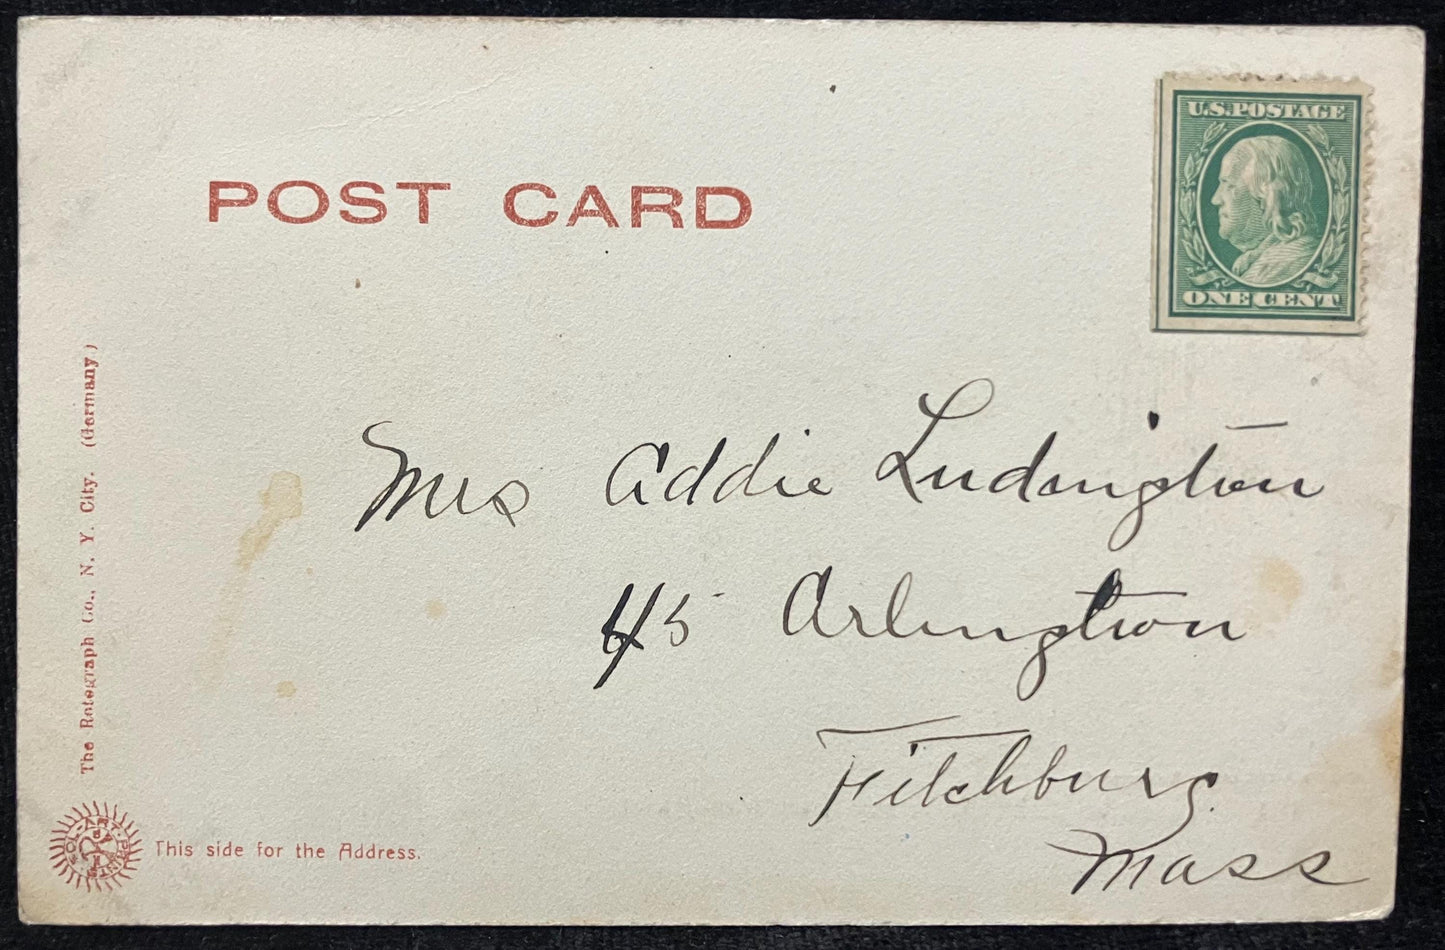 U.S. POSTAGE
ONE CENT
POST CARD
Mrs Addie Ludington
45 Arlington
Fitchburg
Mass
The Rotograph Co., N. Y. City. (Germany)
SOL-ART PRINTS
This side for the Address.